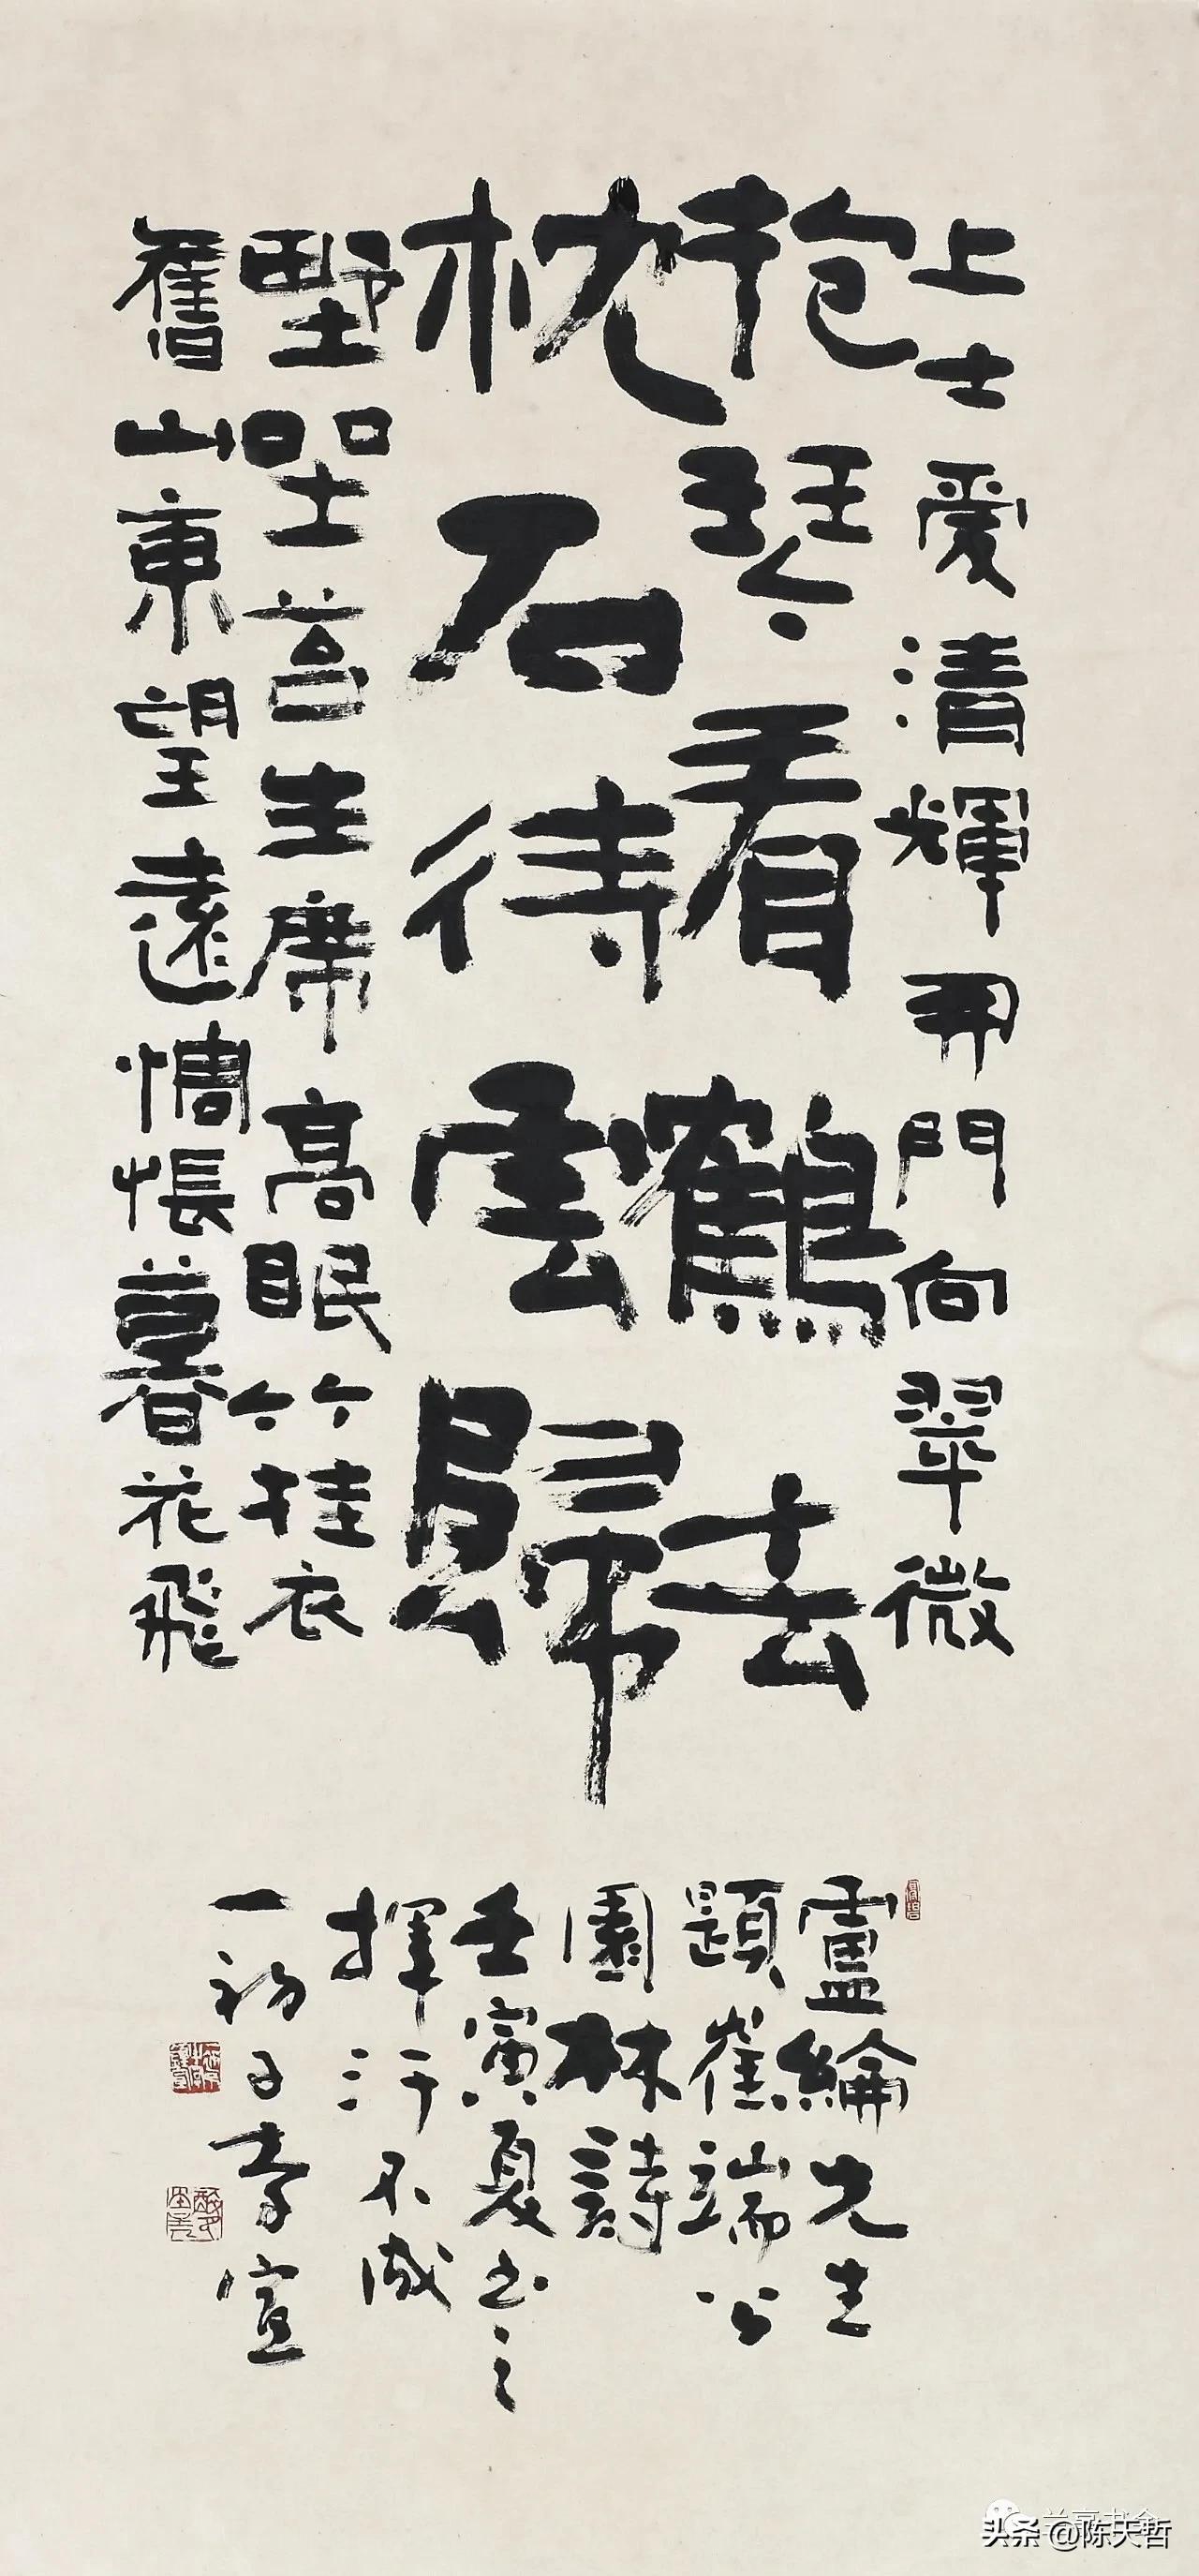 上士愛清輝開門向翠微
抱琴看鶴去
枕石待雲歸
野坐苔生席高眠竹挂衣
舊山東望遠惆悵暮花飛
盧綸先生
題崔端公
園林詩
壬寅夏書之
揮汗不成
一初子孝宣
头条 @陈天哲